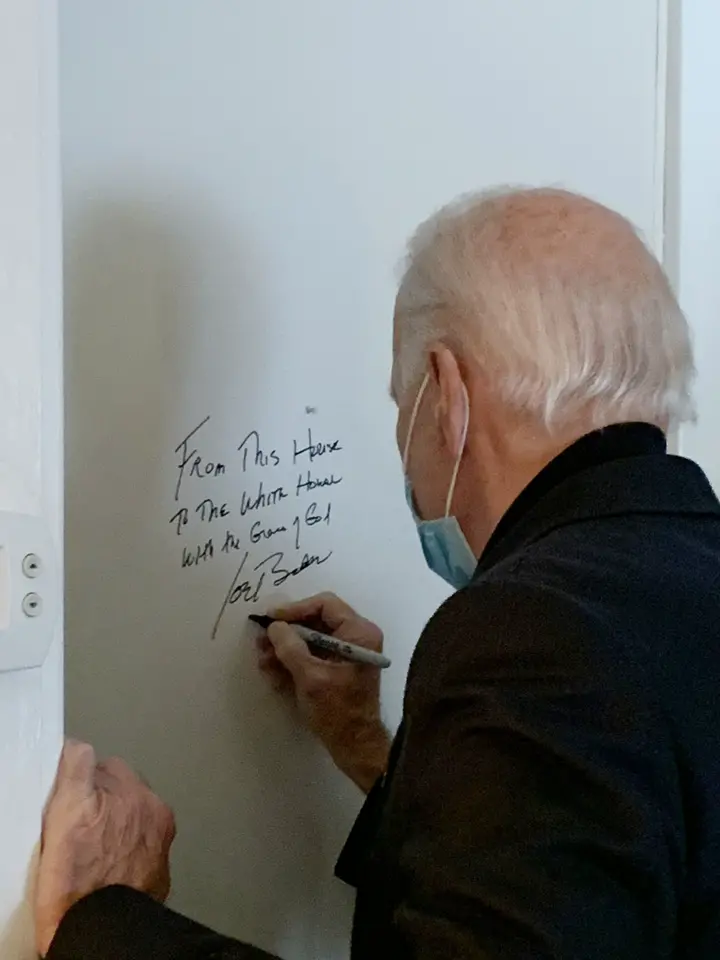 From This House
To The White House
With the Grace of God
Joe Biden